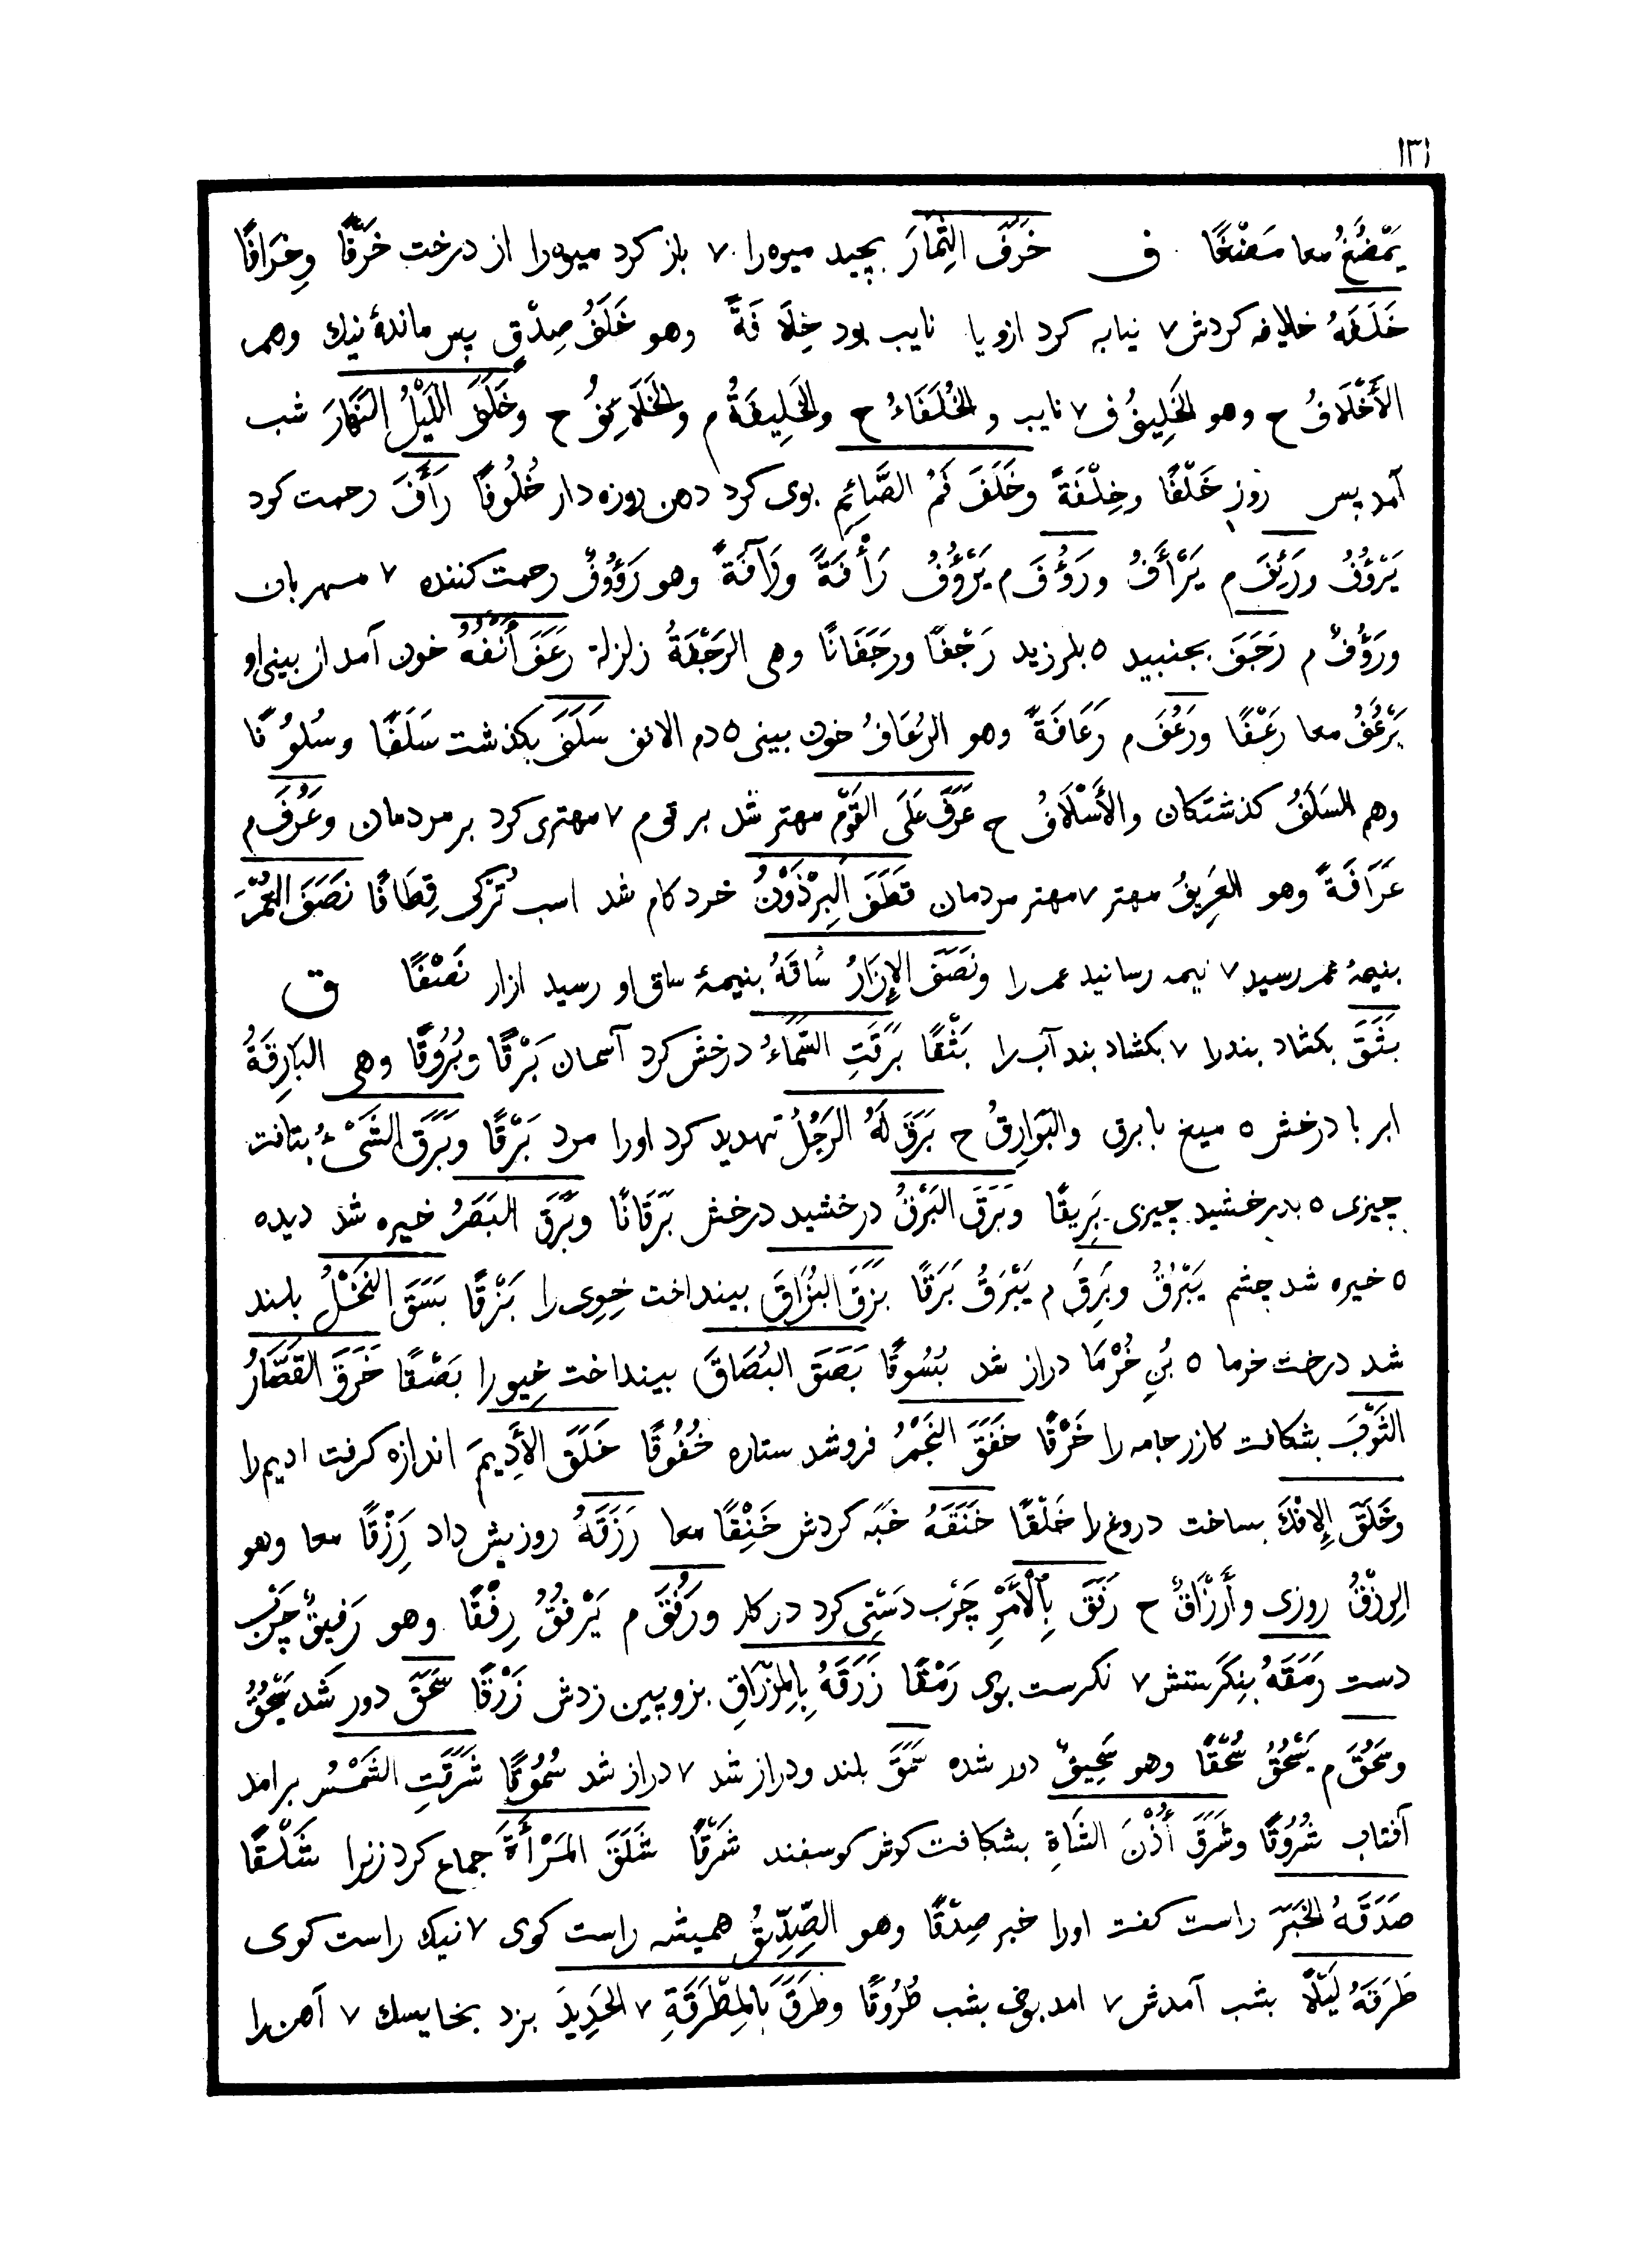 ١٣١
يَمْضُغُ معا مَضْغًا ف خَرَفَ الثِّمَارَ بچيد ميوه را ٧ باز كرد ميوه را از درخت خَرْفًا وخِرَافًا
خَلَفَهُ خلافه كردش ٧ نيابه كرد ازو يا نايب بود خِلَافَةً وهو خَلَفُ صِدْقٍ پس ماندهٔ نيك وهم
الأَخْلَافُ ح وهو الخَلِيفُ ف ٧ نايب و الخُلَفَاءُ ح والخَلِيفَةُ م والخَلَائِفُ ح وخَلَفَ اللَّيْلُ النَّهَارَ شب
آمد پس روز خَلْفًا وخِلْفَةً وخَلَفَ فَمُ الصَّائِمِ بوى كرد دهن روزه دار خُلُوفًا رَأَفَ رحمت كرد
يَرْؤُفُ ورَئِفَ م يَرْأَفُ ورَؤُفَ م يَرْؤُفُ رَأْفَةً ورَآفَةً وهو رَؤُوفٌ رحمت كننده ٧ مهربان
ورَؤُفٌ م رَجَفَ بجنبيد ٥ بلرزيد رَجْفًا ورَجَفَانًا وهى الرَجْفَةُ زلزلة رَعَفَ أَنْفُهُ خون آمد از بينى او
يَرْعُفُ معا رَعْفًا ورَعُفَ م رَعَافَةً وهو الرُعَافُ خون بينى ٥ دم الانف سَلَفَ بكذشت سَلَفًا وسُلُوفًا
وهم السَلَفُ كذشتكان والأَسْلَافُ ح عَرَفَ عَلَى القَوْمِ مهتر شد بر قوم ٧ مهترى كرد بر مردمان وعَرُفَ م
عَرَافَةً وهو العَرِيفُ مهتر ٧ مهتر مردمان قَطَفَ البِرْذَوْنُ خرد كام شد اسب تُركى قِطَافًا نَصَفَ العُمْرَ
بنيمهٔ عمر رسيد ٧ نيمه رسانيد عمر را ونَصَفَ الإِزَارُ سَاقَهُ بنيمهٔ ساق او رسيد ازار نَصْفًا ق
بَثَقَ بكشاد بند را ٧ بكشاد بند آب را بَثْقًا بَرَقَتِ السَّمَاءُ درخش كرد آسمان بَرْقًا وبُرُوقًا وهى البَارِقَةُ
ابر با درخش ٥ ميغ با برق والبَوَارِقُ ح بَرَقَ لَهُ الرَجُلُ تهديد كرد اورا مرد بَرْقًا وبَرَقَ الشَىْءُ بتافت
چيزى ٥ بدرخشيد چيزى بَرِيقًا وبَرَقَ البَرْقُ درخشيد درخش بَرَقَانًا وبَرَقَ البَصَرُ خيره شد ديده
٥ خيره شد چشم يَبْرُقُ وبَرِقَ م يَبْرَقُ بَرَقًا بَزَقَ البُزَاقَ بينداخت خِوى را بَزْقًا بَسَقَ النَخْلُ بلند
شد درخت خرما ٥ بُنِ خُرْمَا دراز شد بُسُوقًا بَصَقَ البُصَاقَ بينداخت خيو را بَصْقًا خَرَقَ القَصَّارُ
الثَوْبَ بشكافت كازر جامه را خَرْقًا خَفَقَ النَجْمُ فروشد ستاره خُفُوقًا خَلَقَ الأَدِيمَ اندازه كرفت اديم را
وخَلَقَ الإِفْكَ بساخت دروغ را خَلْقًا خَنَقَهُ خبه كردش خَنِقًا معا رَزَقَهُ روزيش داد رَزْقًا معا وهو
الرِزْقُ روزى وأَرْزَاقٌ ح رَفَقَ بِالأَمْرِ چَرْب دَسْتِى كرد در كار ورَفُقَ م يَرْفُقُ رِفْقًا وهو رَفِيقٌ چرب
دست رَمَقَهُ بنِكَرستش ٧ نكرست بوى رَمْقًا زَرَقَهُ بِالمِزْرَاقِ بزوبين زدش زَرْقًا سَحَقَ دور شد يَسْحُقُ
وسَحُقَ م يَسْحُقُ سُحْقًا وهو سَحِيقٌ دور شده سَمَقَ بلند ودراز شد ٧ دراز شد سُمُوقًا شَرَقَتِ الشَمْسُ برامد
آفتاب شُرُوقًا وشَرَقَ أُذُنَ الشَاةِ بشكافت كوش كوسفند شَرْقًا شَلَقَ المَرْأَةَ جماع كرد زنرا شَلْقًا
صَدَقَهُ الخَبَرَ راست كفت اورا خبر صِدْقًا وهو الصِّدِّيقُ هميشه راست كوى ٧ نيك راست كوى
طَرَقَهُ لَيْلًا بشب آمدش ٧ امد بوى بشب طُرُوقًا وطَرَقَ بِالمِطْرَقَةِ ٧ الحَدِيدَ بزد بخايسك ٧ آهن را